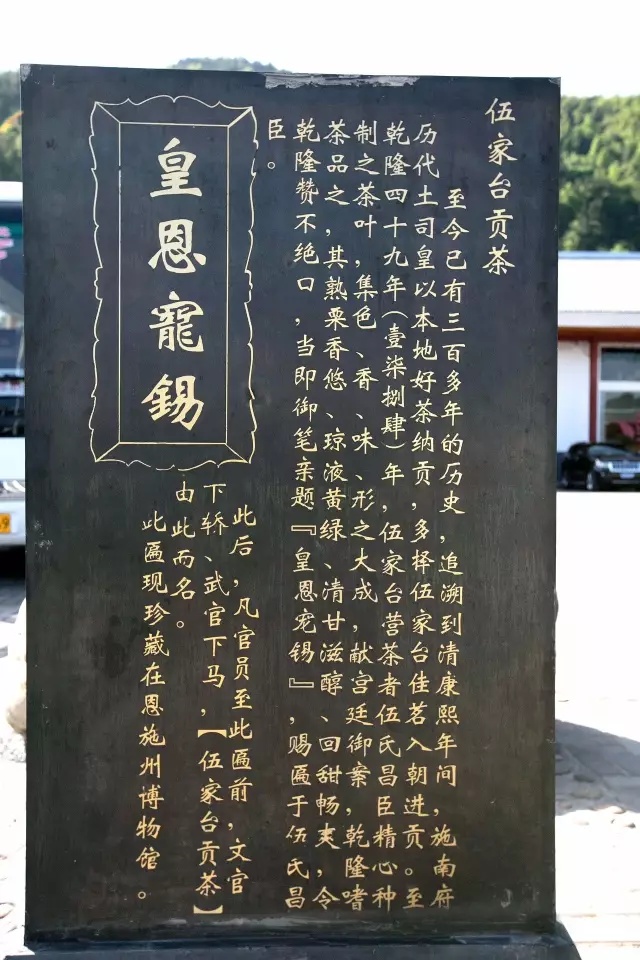 伍家台贡茶
至今已有三百多年的历史，追溯到清康熙年间，施南府
历代土司皇以本地好茶纳贡，多择伍家台佳茗入朝进贡。至
乾隆四十九年（壹柒捌肆）年，伍家台营茶者伍氏昌臣精心种
制之茶叶，集色、香、味、形之大成，献宫廷御案，乾隆嗜
茶品之，其熟栗香悠、琼液黄绿、清甘滋醇、回甜畅爽，令
乾隆赞不绝口，当即御笔亲题『皇恩宠锡』，赐匾于伍氏昌
臣。
皇恩寵錫
此后，凡官员至此匾前，文官
下轿、武官下马，【伍家台贡茶】
由此而名。
此匾现珍藏在恩施州博物馆。